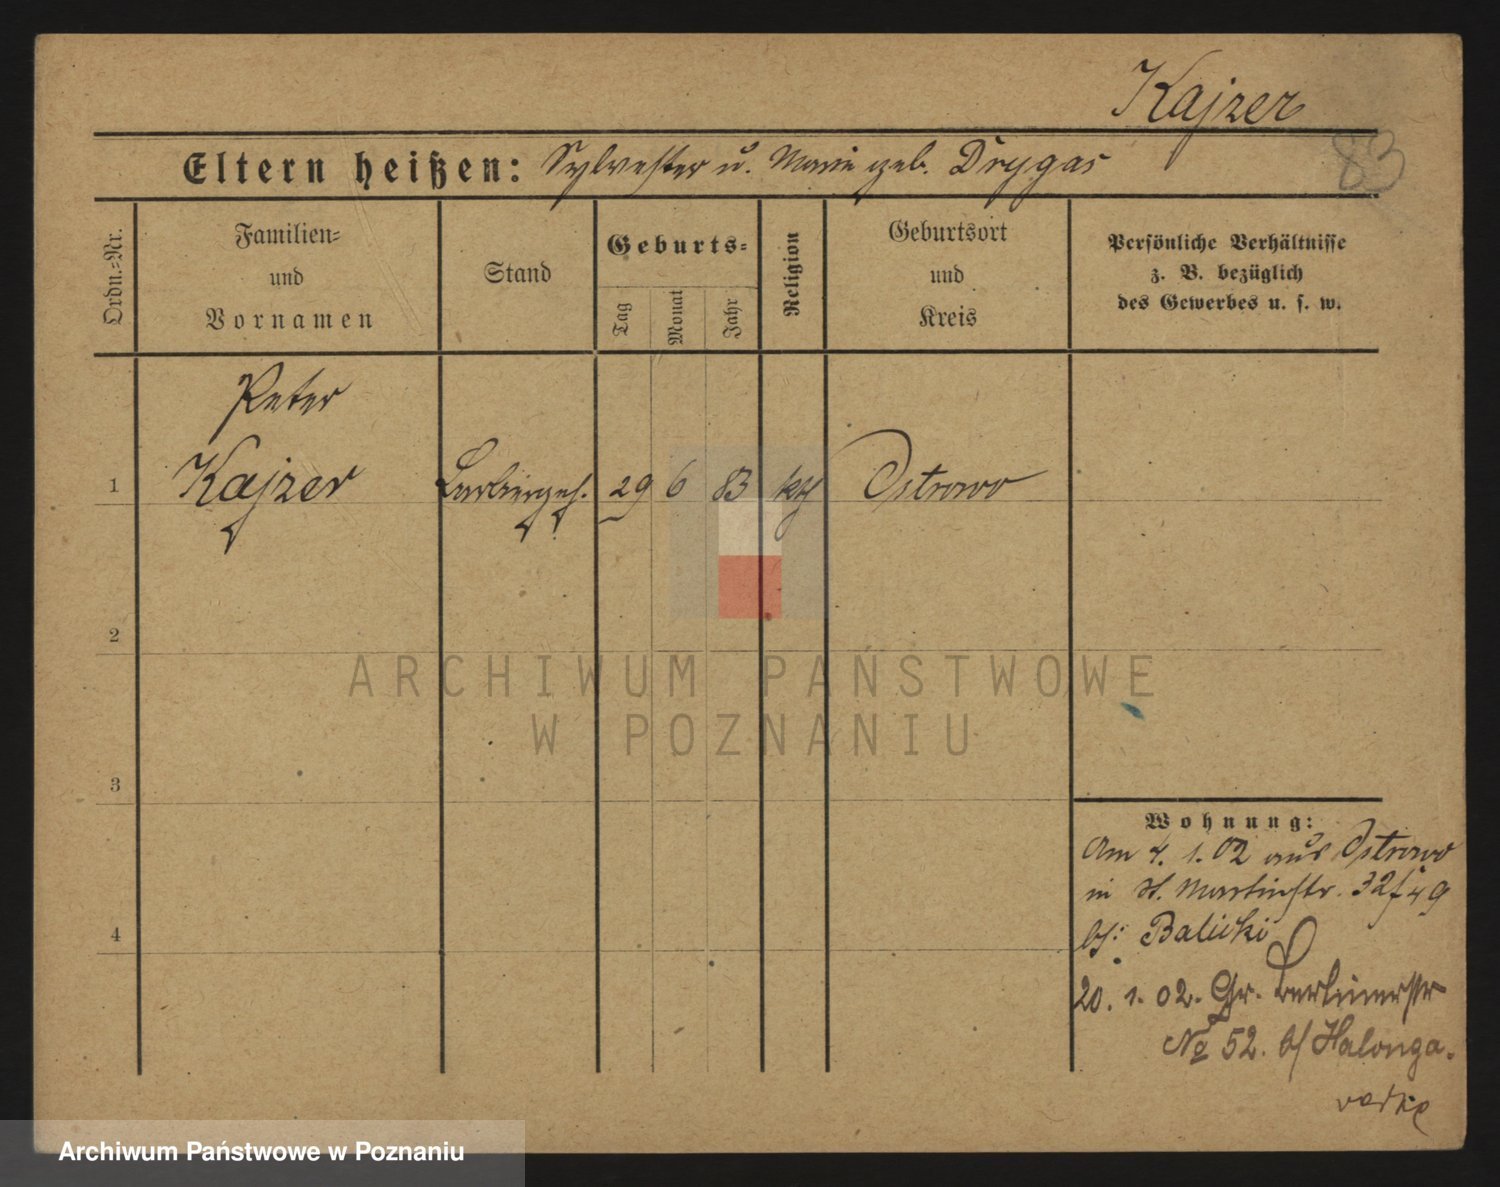 Kajzer
83
Eltern heißen: Sylvester u. Marie geb. Drygas
Ordn.=Nr.
Familien=
und
Vornamen
Stand
Geburts=
Tag
Monat
Jahr
Religion
Geburtsort
und
Kreis
Persönliche Verhältnisse
z. B. bezüglich
des Gewerbes u. s. w.
Peter
1 Kajzer Barbiergeh. 29 6 83 kth Ostrowo
2
3
4
ARCHIWUM PAŃSTWOWE
W POZNANIU
Wohnung:
Am 4. 1. 02 aus Ostrowo
in St. Martinstr. 32
bei Balicki
20. 1. 02. Gr. Berlinerstr
No 52. b/
Archiwum Państwowe w Poznaniu